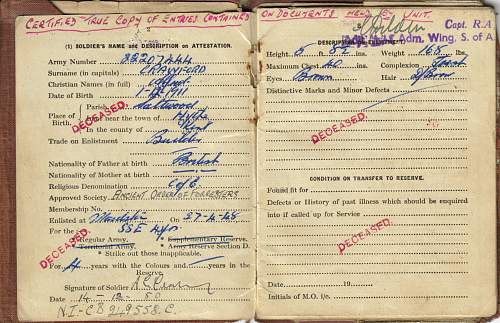 CERTIFIED TRUE COPY OF ENTRIES CONTAINED ON DOCUMENTS HELD BY UNIT.
2
(1) SOLDIER'S NAME AND DESCRIPTION ON ATTESTATION.
Army Number 22207444
Surname (in capitals) CRAWFORD
Christian Names (in full)
Date of Birth 1911
Place of Birth. Parish Saltwood
In or near the town of Hythe
In the county of Kent
Trade on Enlistment Builder
Nationality of Father at birth British
Nationality of Mother at birth
Religious Denomination C of E.
Approved Society ANCIENT ORDER OF FORRESTERS
Membership No.
Enlisted at On 27-4-48
For the SSE
* Regular Army. * Supplementary Reserve.
* Territorial Army. * Army Reserve Section D.
* Strike out those inapplicable.
For 4 years with the Colours and — years in the Reserve.
Signature of Soldier
Date 14-12-50
N.I-CB 949558.C.
DECEASED.
DECEASED.
DECEASED.
Capt. R.A
Adm. Wing, S. of A.
DESCRIPTION ON
Height ft. Weight 168 lbs.
Maximum Chest 40 ins. Complexion Fresh
Eyes Brown Hair
Distinctive Marks and Minor Defects
DECEASED.
CONDITION ON TRANSFER TO RESERVE.
Found fit for
Defects or History of past illness which should be enquired
into if called up for Service
DECEASED.
Date 19
Initials of M.O. i/c.